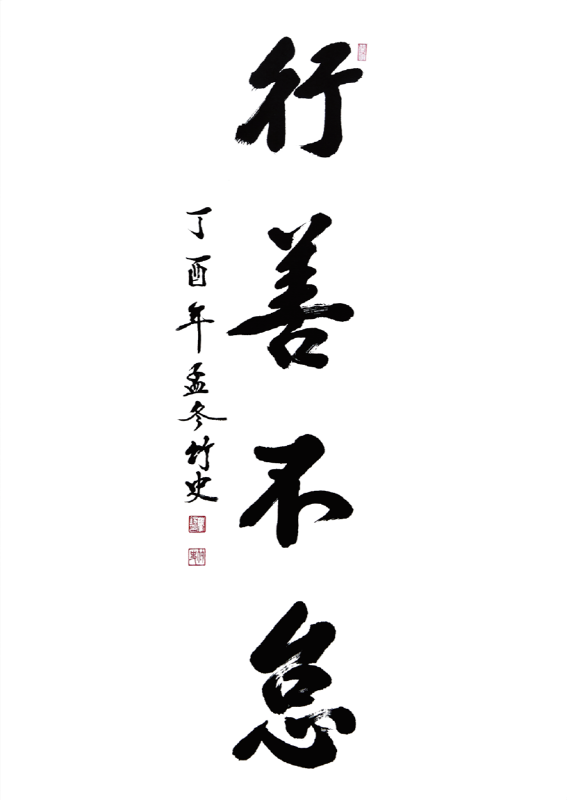 行善不怠
丁酉年孟冬竹史